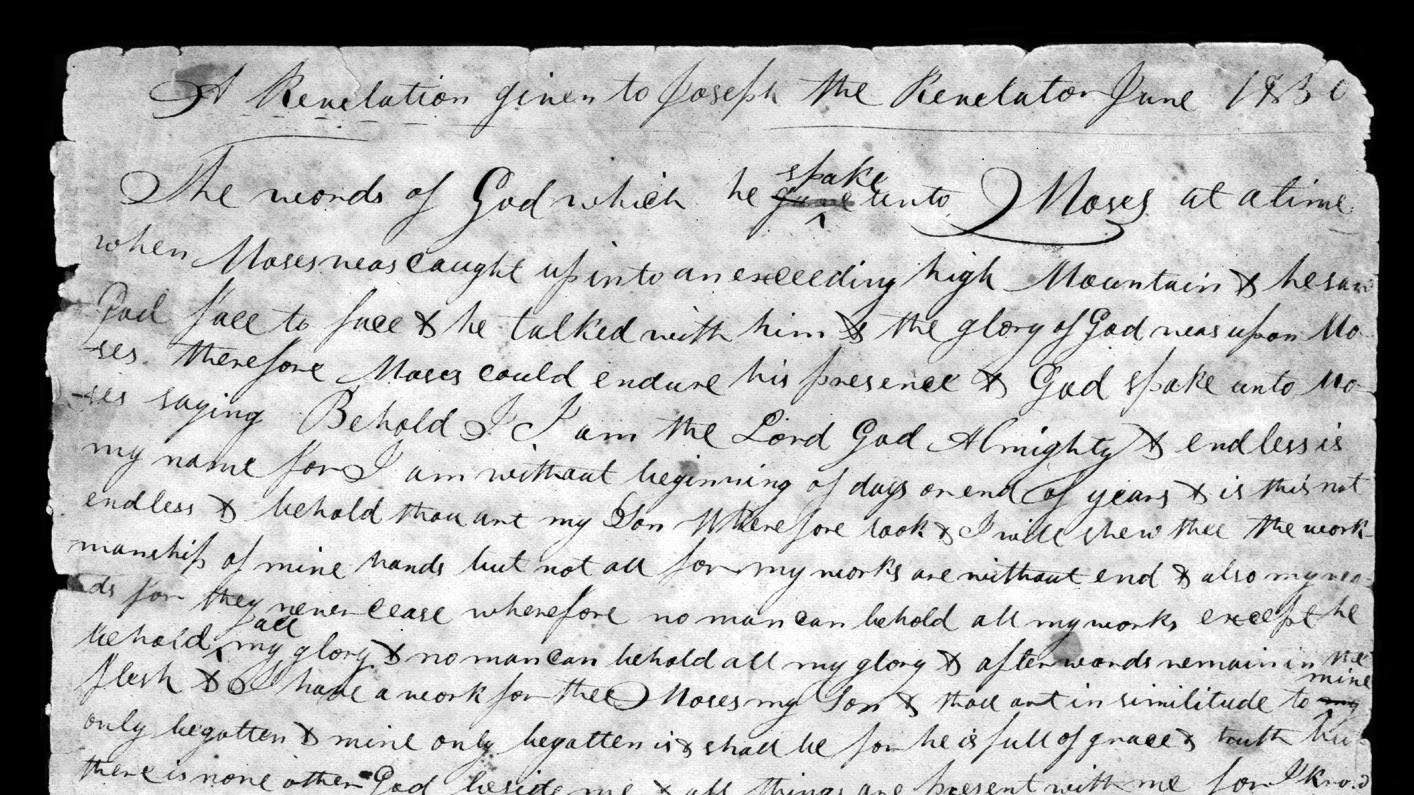 A Revelation given to Joseph the Revelator June 1830
The words of God which he gave spake unto Moses at a time
when Moses was caught up into an exceeding high Mountain & he saw
God face to face & he talked with him & the glory of God was upon Mo
ses therefore Moses could endure his presence & God spake unto Mo
ses saying Behold I I am the Lord God Almighty & endless is
my name for I am without beginning of days or end of years & is this not
endless & behold thou art my Son Wherefore look & I will shew thee the work
manship of mine hands but not all for my works are without end & also my wo
ds for they never cease wherefore no man can behold all my works except he
behold all my glory & no man can behold all my glory & after wards remain in the
flesh & I have a work for thee Moses my Son & thou art in similitude to my mine
only begotten & mine only begotten is & shall be for he is full of grace & truth
there is none other God beside me & all things are present with me for I know